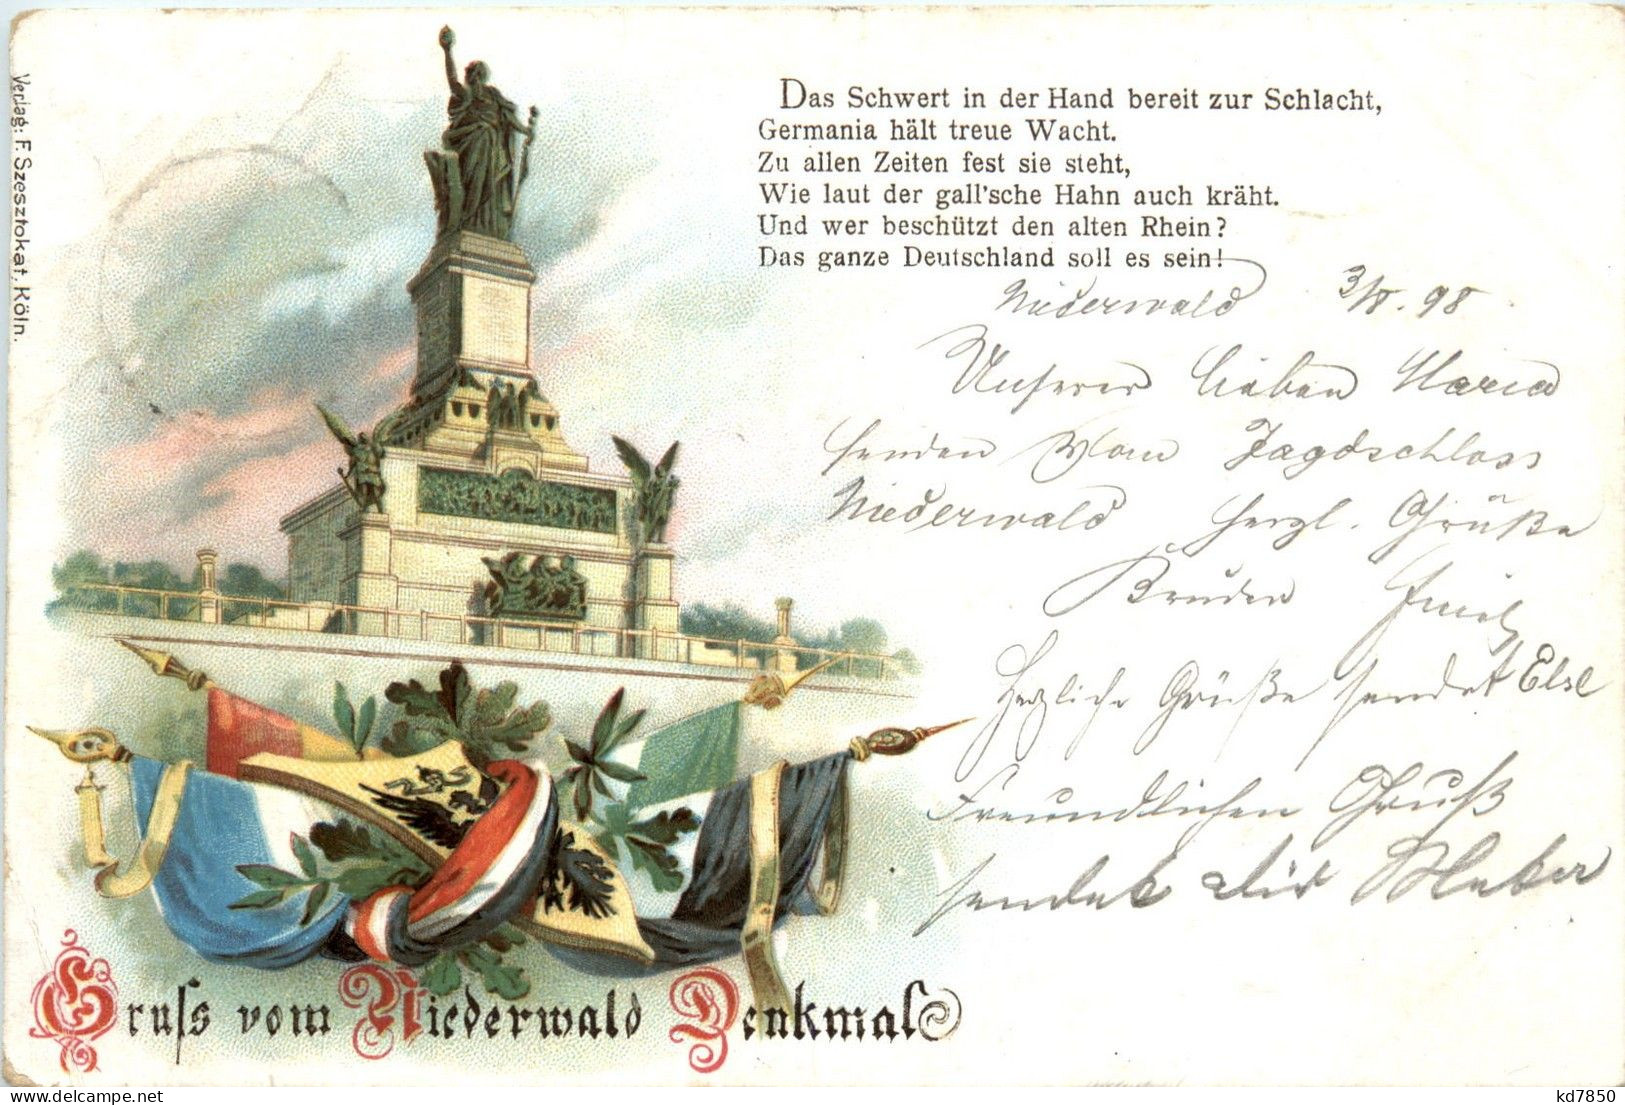 Verlag: F. Szesztokat, Köln.
Das Schwert in der Hand bereit zur Schlacht,
Germania hält treue Wacht.
Zu allen Zeiten fest sie steht,
Wie laut der gall'sche Hahn auch kräht.
Und wer beschützt den alten Rhein?
Das ganze Deutschland soll es sein!
Niederwald 3/8. 98
Unserer lieben Maria
senden vom Jagdschloss
Niederwald herzl. Grüße
Bruder Emil
Herzliche Grüße sendet Else
Freundlichen Gruß
sendet dir
Gruss vom Niederwald Denkmal
akpool.de
kd7850